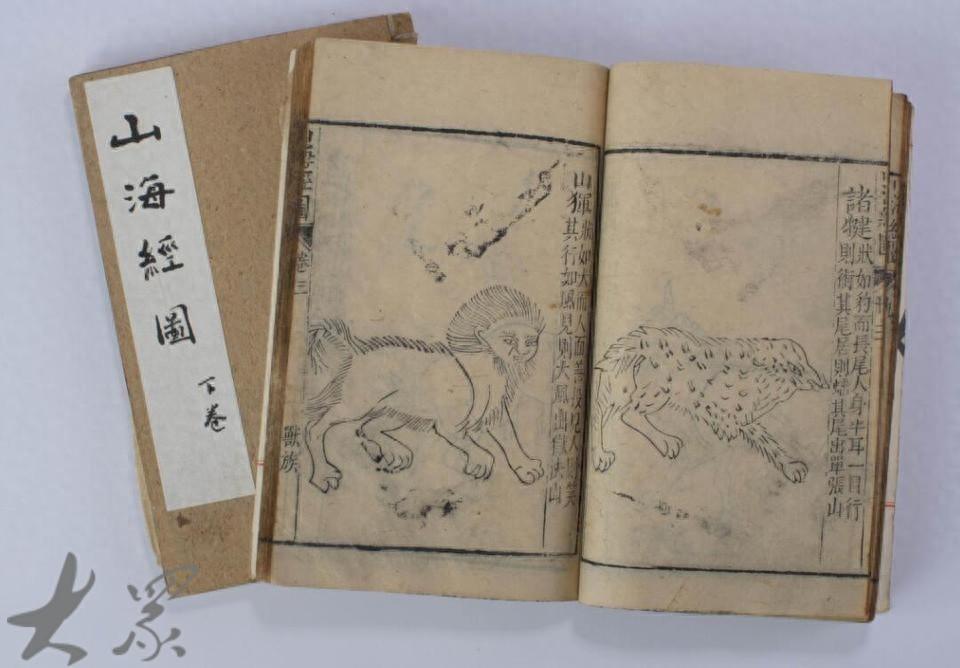 山海經圖
下卷
諸犍狀如豹而長尾人身牛耳一目行
則銜其尾居則蟠其尾出單張山
山𤟤狀如犬而人面善投見人則笑
其行如風見則大風出獄法山
山海經圖 卷三
獸族
大眾